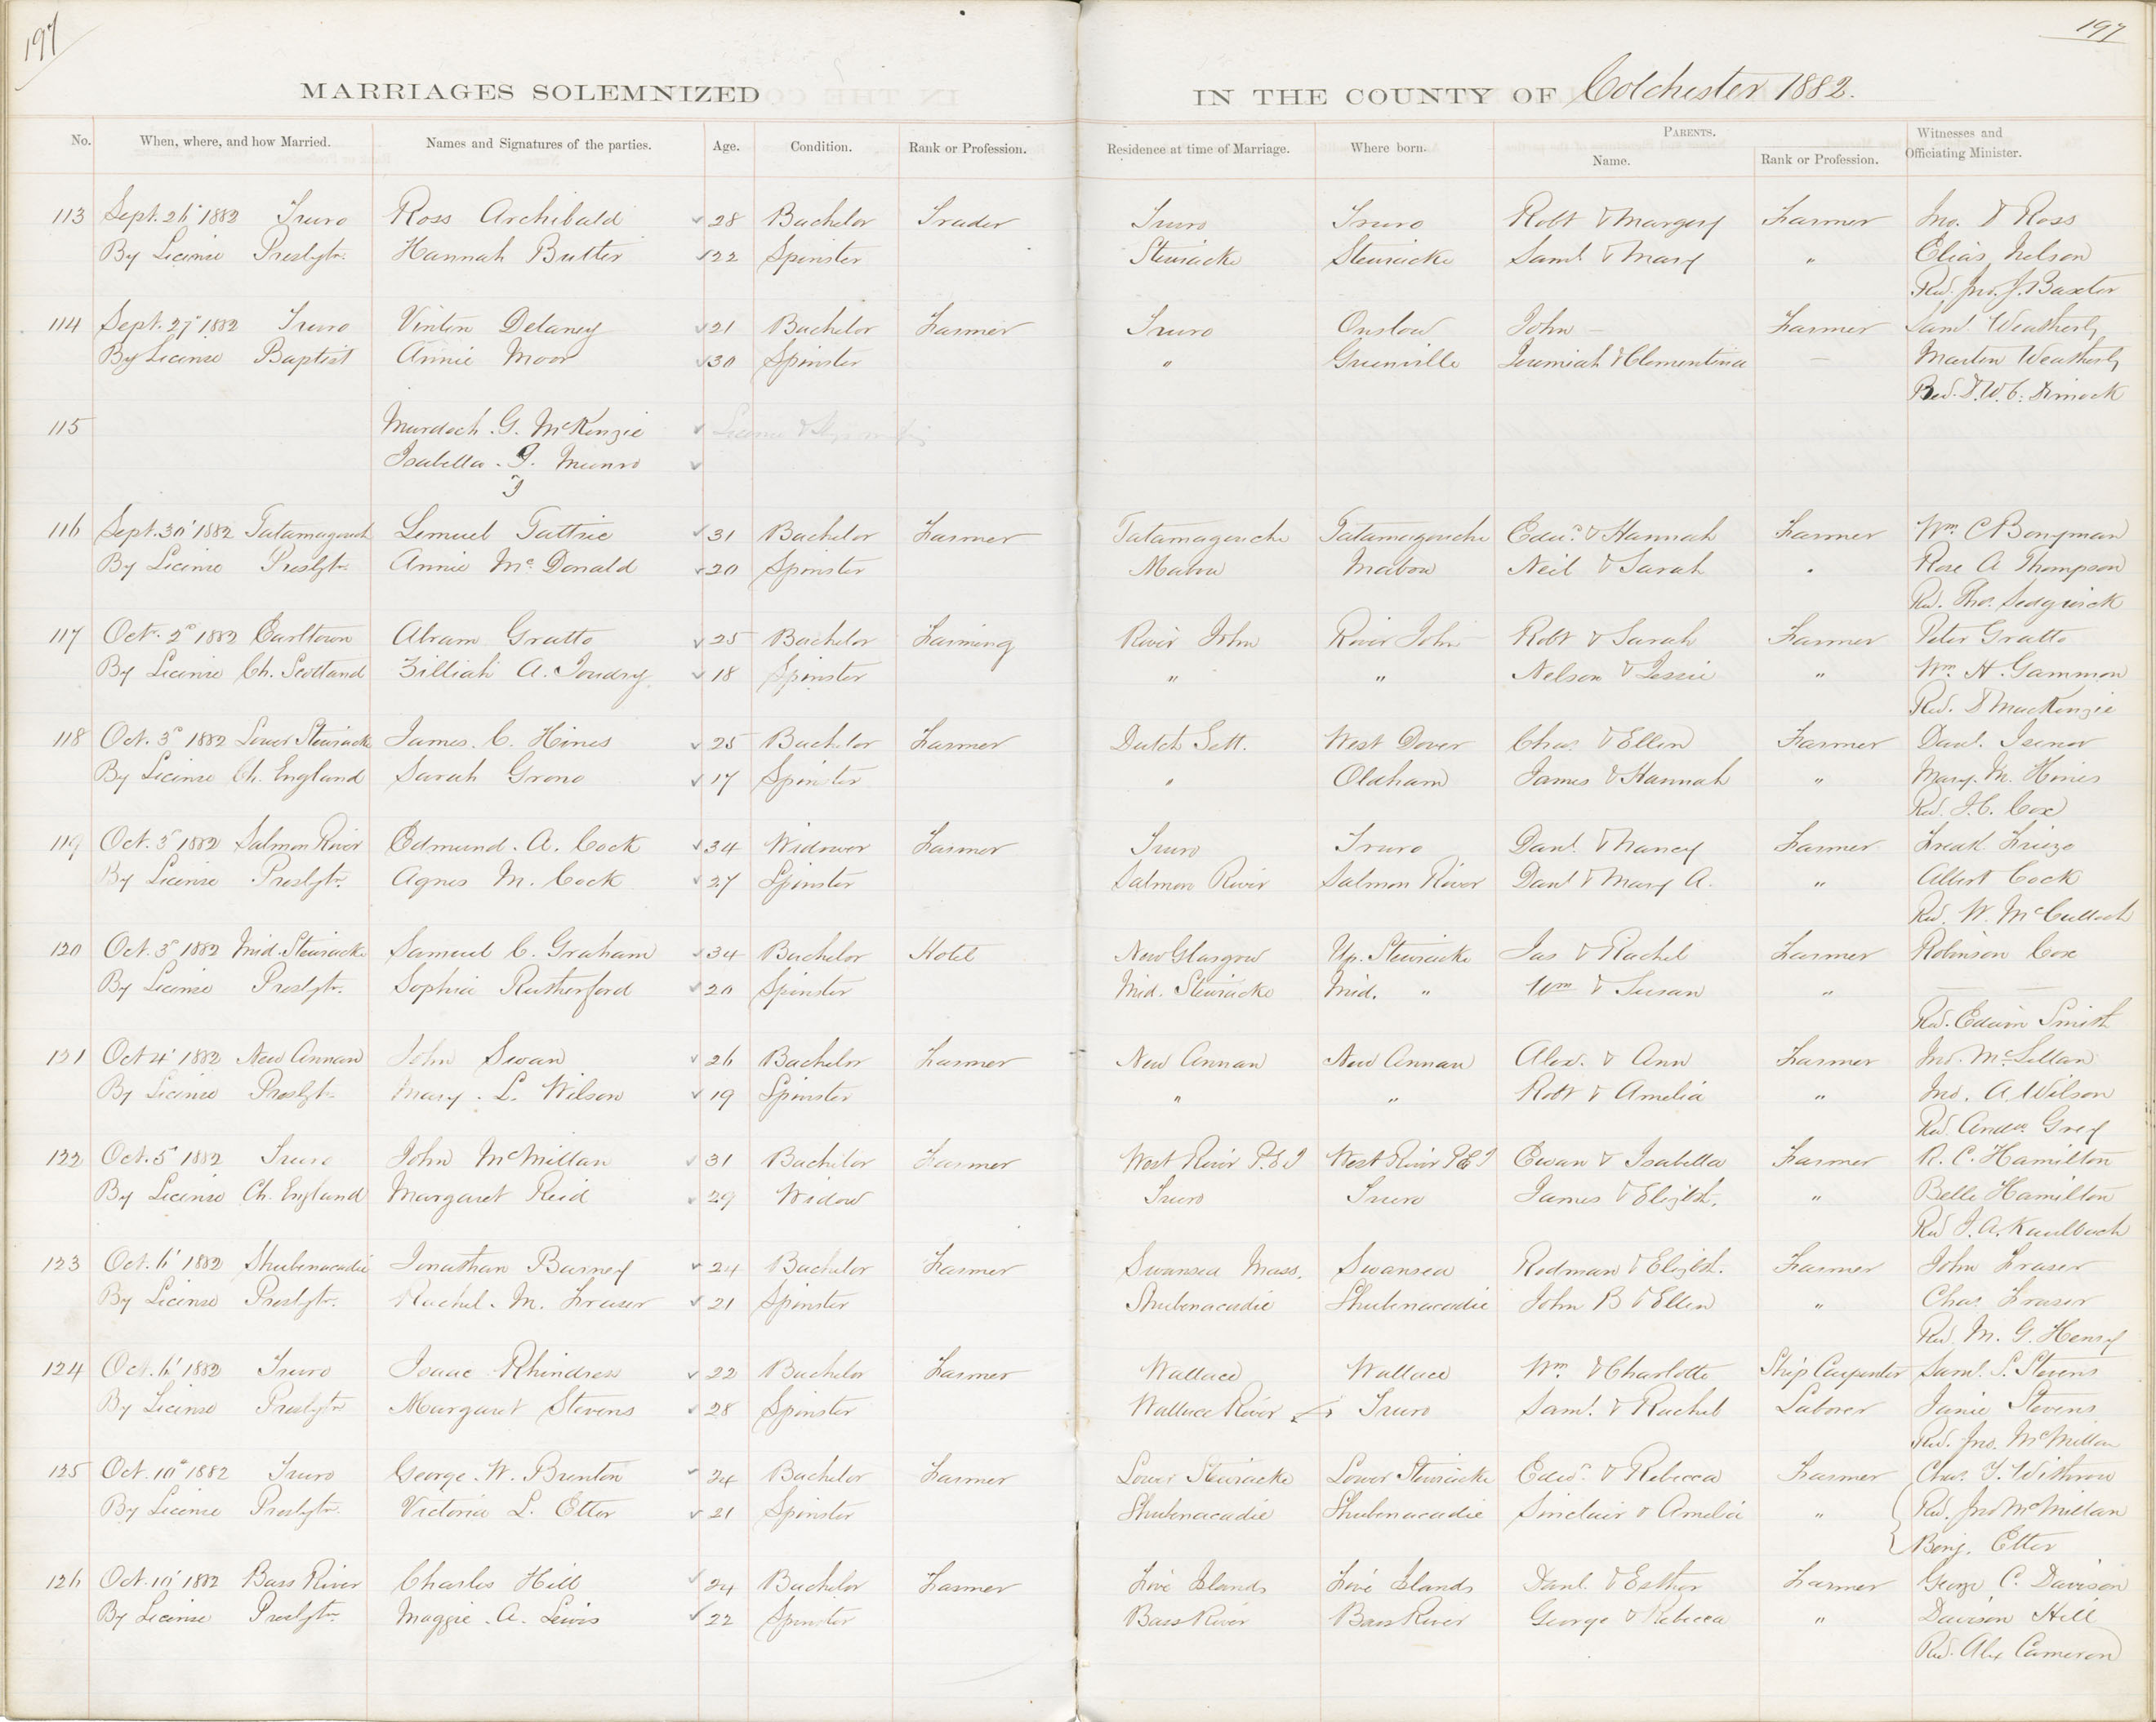 197
197
MARRIAGES SOLEMNIZED IN THE COUNTY OF Colchester 1882.
No. When, where, and how Married. Names and Signatures of the parties. Age. Condition. Rank or Profession. Residence at time of Marriage. Where born. PARENTS. Name. Rank or Profession. Witnesses and Officiating Minister.
113 Sept. 26' 1882 Truro Ross Archibald 28 Bachelor Trader Truro Truro Robt & Margery Farmer Jno. D Ross
By License Presbytn. Hannah Butler 22 Spinster Stewiacke Stewiacke Saml & Mary " Elias Nelson
Rev. Jno. J. Baxter
114 Sept. 27' 1882 Truro Vinton Delaney 21 Bachelor Farmer Truro Onslow John — Farmer Saml Weatherby
By License Baptist Annie Moor 30 Spinster " Greenville Jeremiah & Clementina — Martin Weatherby
Rev. D. W. C. Dimock
115 Murdoch. G. McKenzie
Isabella. J. Munro
J
116 Sept. 30' 1882 Tatamagouch Lemuel Tattrie 31 Bachelor Farmer Tatamagouche Tatamagouche Edwd. & Hannah Farmer Wm. C Bonyman
By License Presbytn. Annie McDonald 20 Spinster Mabou Mabou Neil & Sarah " Rose A Thompson
Rev. Tho. Sedgwick
117 Octr. 2d 1882 Earltown Abram Gratto 25 Bachelor Farming River John River John Robt & Sarah Farmer Peter Gratto
By License Ch. Scotland Zilliah A. Joudry 18 Spinster " " Nelson & Jessie " Wm. H. Gammon
Rev. D MacKenzie
118 Oct. 3d 1882 Lower Stewiacke James. C. Hines 25 Bachelor Farmer Dutch Sett. West Dover Chas. & Ellen Farmer Danl. Isenor
By License Ch. England Sarah Grono 17 Spinster " Oldham James & Hannah " Mary. M. Hines
Rev. J. C. Cox
119 Oct. 3d 1882 Salmon River Edmund. A. Cock 34 Widower Farmer Truro Truro Danl. & Nancy Farmer Fredk Frieze
By License Presbytn. Agnes M. Cock 27 Spinster Salmon River Salmon River Danl & Mary A. " Albert Cock
Rev. W. McCulloch
120 Oct. 3d 1882 Mid. Stewiacke Samuel C. Graham 34 Bachelor Hotel New Glasgow Up. Stewiacke Jas & Rachel Farmer Robinson Cox
By License Presbytn. Sophia Rutherford 20 Spinster Mid. Stewiacke Mid. " Wm & Susan " —
Rev. Edwin Smith
121 Oct 4' 1882 New Annan John Swan 26 Bachelor Farmer New Annan New Annan Alex. & Ann Farmer Jno. McLellan
By License Presbytn. Mary. L. Wilson 19 Spinster " " Robt & Amelia " Jno. A. Wilson
Rev. Andw. Grey
122 Oct. 5' 1882 Truro John McMillan 31 Bachelor Farmer West River P.E.I West River P E I Ewan & Isabella Farmer R. C. Hamilton
By License Ch. England Margaret Reid 29 Widow Truro Truro James & Elizbth. " Belle Hamilton
Rev J. A. Kaulbach
123 Oct. 6' 1882 Shubenacadie Jonathan Barney 24 Bachelor Farmer Swansea Mass. Swansea Rodman & Elizbth. Farmer John Fraser
By License Presbytn. Rachel. M. Fraser 21 Spinster Shubenacadie Shubenacadie John B & Ellen " Chas Fraser
Rev. M. G. Henry
124 Oct. 6' 1882 Truro Isaac Rhindress 22 Bachelor Farmer Wallace Wallace Wm. & Charlotte Ship Carpenter Saml. S. Stevens
By License Presbytn Margaret Stevens 28 Spinster Wallace River Truro Saml. & Rachel Laborer Janie Stevens
Rev. Jno. McMillan
125 Oct. 10' 1882 Truro George. W. Brenton 24 Bachelor Farmer Lower Stewiacke Lower Stewiacke Edwd. & Rebecca Farmer Chas. J. Withrow
By License Presbytn. Victoria L. Etter 21 Spinster Shubenacadie Shubenacadie Sinclair & Amelia " Rev. Jno McMillan
Benj. Etter
126 Oct. 10' 1882 Bass River Charles Hill 24 Bachelor Farmer Five Islands Five Islands Danl. & Esther Farmer George C. Davison
By License Presbytn. Maggie. A. Lewis 22 Spinster Bass River Bass River George & Rebecca " Davison Hill
Rev. Alex Cameron